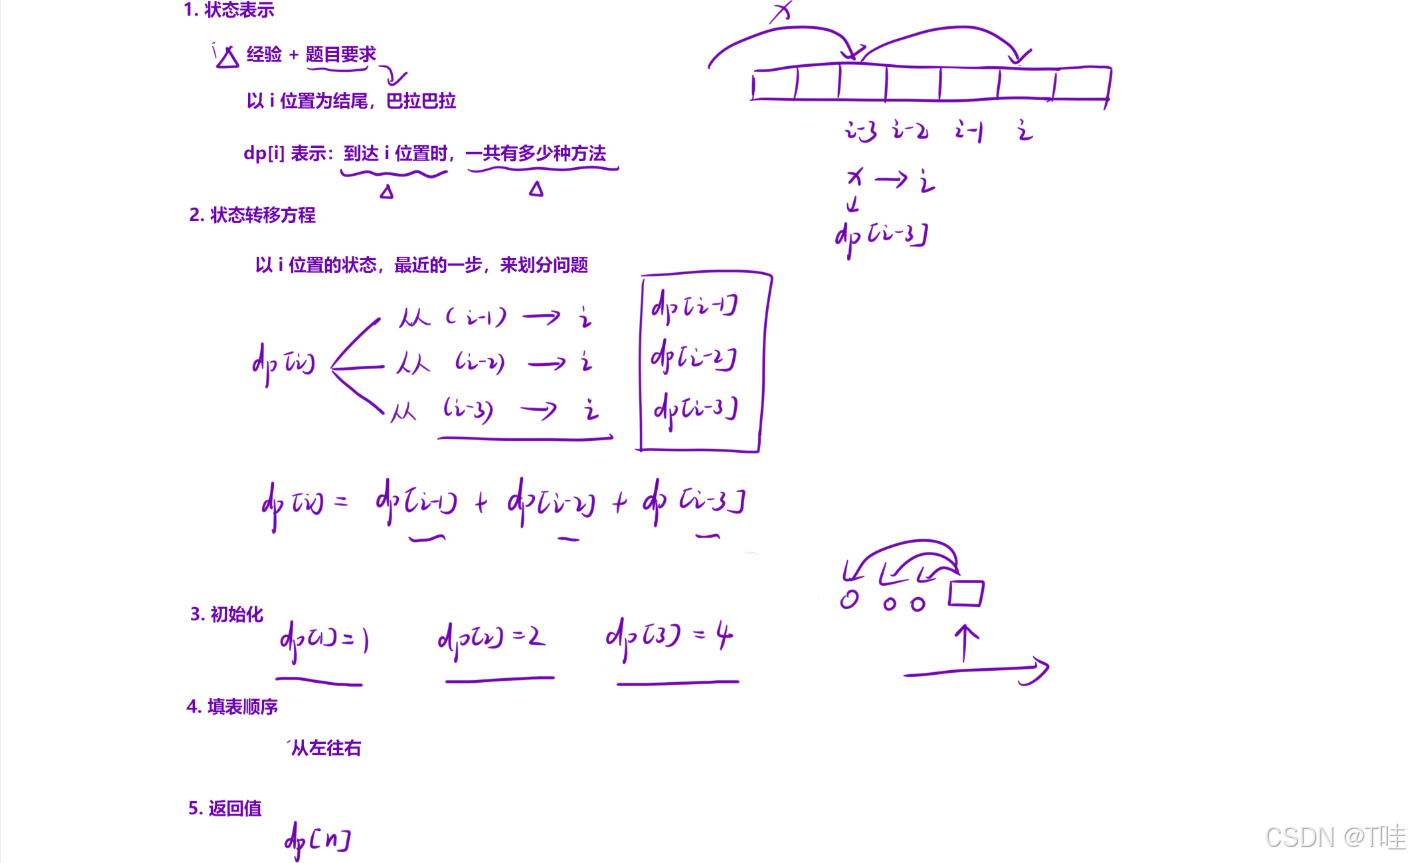 1. 状态表示
经验 + 题目要求
以 i 位置为结尾，巴拉巴拉
dp[i] 表示：到达 i 位置时，一共有多少种方法
x
i-3 i-2 i-1 i
x → i
dp[i-3]
2. 状态转移方程
以 i 位置的状态，最近的一步，来划分问题
dp[i]
从 (i-1) → i dp[i-1]
从 (i-2) → i dp[i-2]
从 (i-3) → i dp[i-3]
dp[i] = dp[i-1] + dp[i-2] + dp[i-3]
3. 初始化
dp[1] = 1 dp[2] = 2 dp[3] = 4
4. 填表顺序
从左往右
5. 返回值
dp[n]
CSDN @T哇